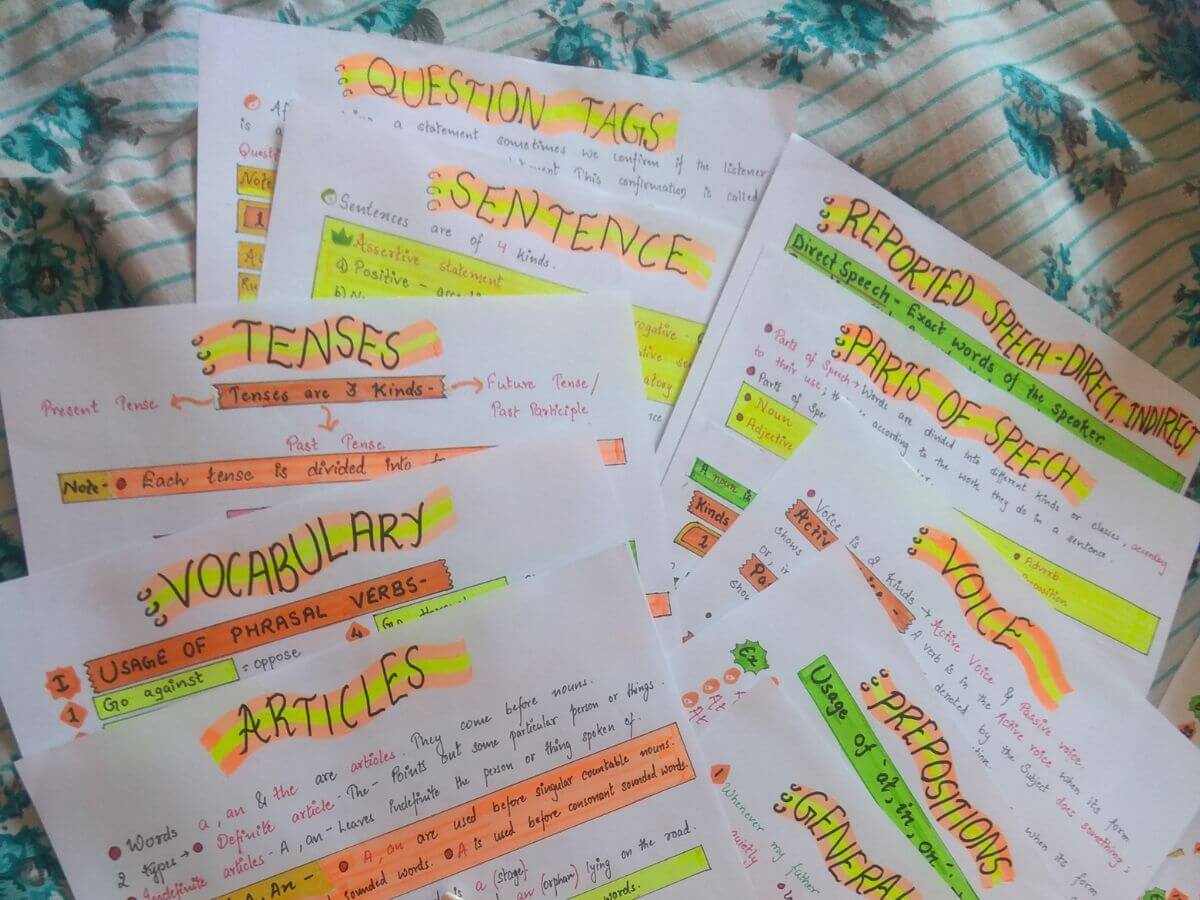 QUESTION TAGS
a statement sometimes we confirm if the listener
This confirmation is called
Note
1
SENTENCE
Sentences are of 4 kinds.
Assertive statement
a) Positive -
b)
TENSES
Tenses are 3 Kinds-
Present Tense
Future Tense/
Past Participle
Past Tense
Note- Each tense is divided into
VOCABULARY
USAGE OF PHRASAL VERBS-
I
4
1 Go against = oppose
ARTICLES
Words a, an & the are articles. They come before nouns.
2 types → Definite article - The - Points out some particular person or things.
Indefinite articles - A, an - Leaves indefinite the person or thing spoken of.
A, An - A, an are used before singular countable nouns.
sounded words. A is used before consonant sounded words.
is a (stage)
an (orphan) lying on the road.
words.
REPORTED SPEECH-DIRECT, INDIRECT
Direct Speech - Exact words of the speaker.
PARTS OF SPEECH
Parts of Speech → Words are divided into different kinds or classes, according
to their use; according to the work they do in a sentence.
Parts of
Noun
Adjective
Adverb
A noun
Kinds
2
VOICE
Voice is 2 Kinds → Active Voice & Passive voice
A verb is in the Active voice when its form
shows
denoted by the Subject does something;
or,
when its form
Ex
At
At
PREPOSITIONS
Usage of 'at, in, on'
GENERAL
1 Whenever
my father
quietly